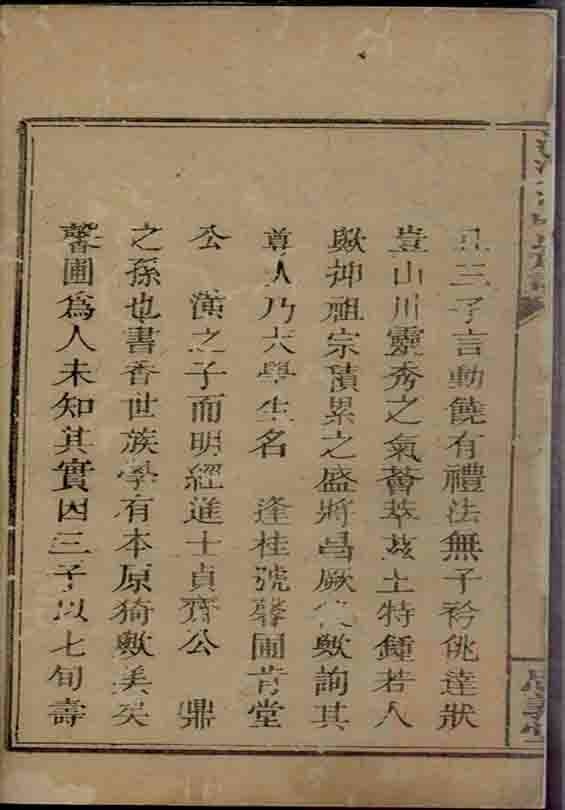 且三子言動饒有禮法無子衿佻達狀
豈山川靈秀之氣薈萃茲土特鍾若人
歟抑祖宗積累之盛將昌厥代歟詢其
尊人乃太學生名 逢桂號馨圃肯堂
公 漢之子而明經進士貞齊公 鼎
之孫也書香世族學有本原猗歟美矣
馨圃為人未知其實因三子以七旬壽